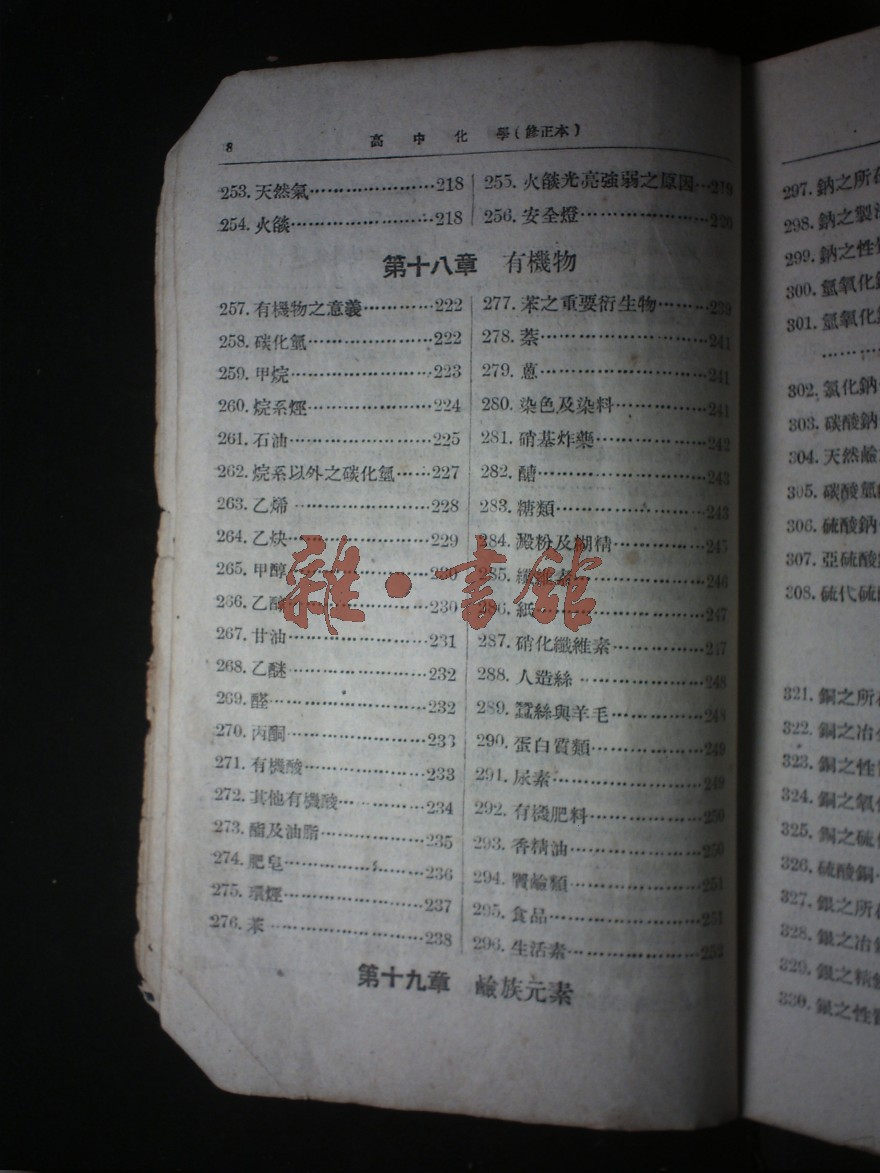 8
高中化學(修正本)
253. 天然氣…………………218
254. 火燄……………………218
255. 火燄光亮強弱之原因…219
256. 安全燈…………………220
第十八章 有機物
257. 有機物之意義…………222
258. 碳化氫…………………222
259. 甲烷……………………223
260. 烷系烴…………………224
261. 石油……………………225
262. 烷系以外之碳化氫……227
263. 乙烯……………………228
264. 乙炔……………………229
265. 甲醇……………………230
266. 乙醇……………………230
267. 甘油……………………231
268. 乙醚……………………232
269. 醛………………………232
270. 丙酮……………………233
271. 有機酸…………………233
272. 其他有機酸……………234
273. 酯及油脂………………235
274. 肥皂……………………236
275. 環烴……………………237
276. 苯………………………238
277. 苯之重要衍生物………239
278. 萘………………………241
279. 蒽………………………241
280. 染色及染料……………241
281. 硝基炸藥………………242
282. 醣………………………243
283. 糖類……………………243
284. 澱粉及糊精……………245
285. 纖維素…………………246
286. 紙………………………247
287. 硝化纖維素……………247
288. 人造絲…………………248
289. 蠶絲與羊毛……………248
290. 蛋白質類………………249
291. 尿素……………………249
292. 有機肥料………………250
293. 香精油…………………250
294. 贋鹼類…………………251
295. 食品……………………251
296. 生活素…………………252
第十九章 鹼族元素
雜·書館
297. 鈉之所在
298. 鈉之製
299. 鈉之性
300. 氫氧化
301. 氫氧化
302. 氯化鈉
303. 碳酸鈉
304. 天然鹼
305. 碳酸氫
306. 硫酸鈉
307. 亞硫酸
308. 硫代硫
321. 銅之所在
322. 銅之冶
323. 銅之性
324. 銅之氧
325. 銅之硫
326. 硫酸銅
327. 銀之所在
328. 銀之冶
329. 銀之精
330. 銀之性